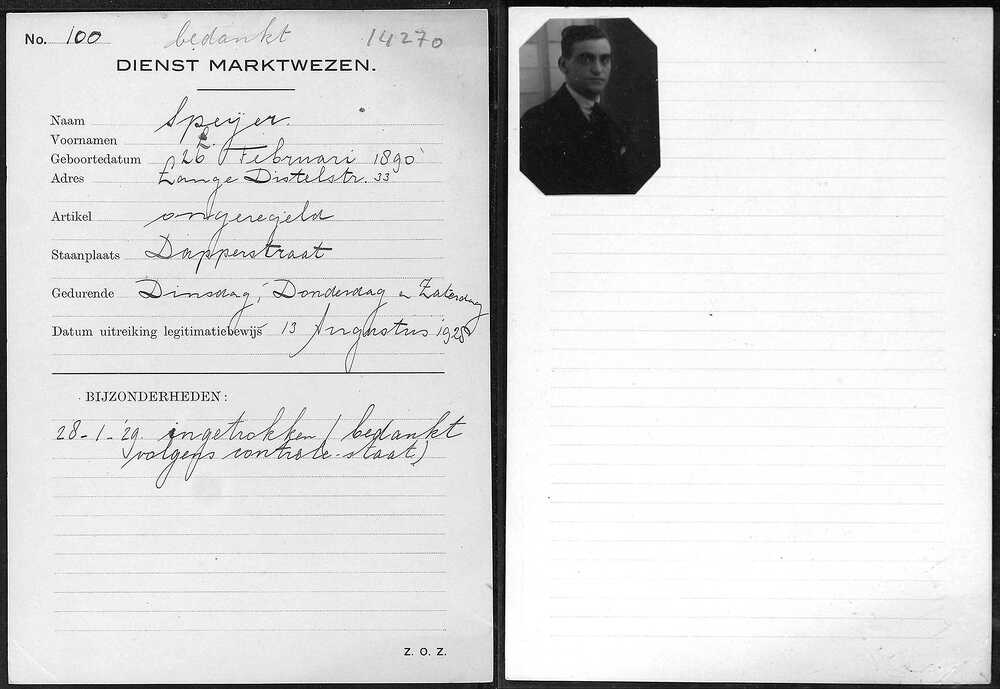 No. 100 bedankt 14270
DIENST MARKTWEZEN.
Naam Speijer.
Voornamen
Geboortedatum 26 Februari 1890
Adres Lange Distelstr. 33
Artikel ongeregeld
Staanplaats Dapperstraat
Gedurende Dinsdag, Donderdag en Zaterdag
Datum uitreiking legitimatiebewijs 13 Augustus 1928
BIJZONDERHEDEN:
28-1-'29. ingetrokken (bedankt
volgens controle-staat)
Z. O. Z.